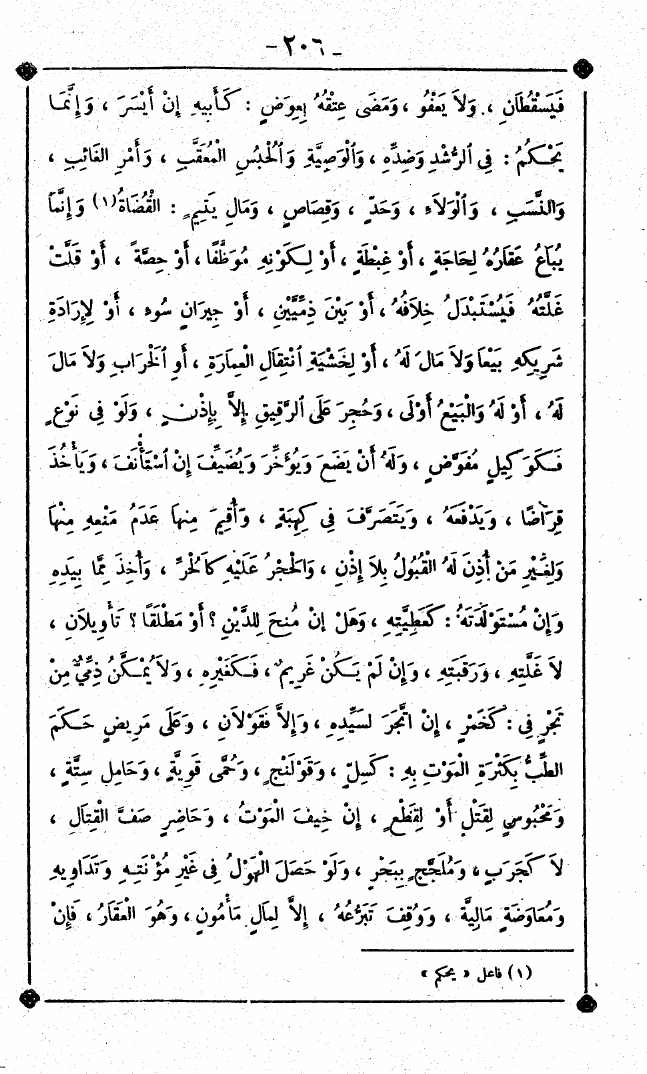 - ٢٠٦ -
فَيَسْقُطَانِ ، وَلاَ يَعْفُو ، وَمَضَى عِتْقُهُ بِعِوَضٍ : كَأَبِيهِ إِنْ أَيْسَرَ ، وَإِنَّمَا
يَحْكُمُ : فِي ٱلرُّشْدِ وَضِدِّهِ ، وَٱلْوَصِيَّةِ وَٱلْحُبُسِ الْمُعَقَّبِ ، وَأَمْرِ الغَائِبِ ،
وَالنَّسَبِ ، وَٱلْوَلاَءِ ، وَحَدٍّ ، وَقِصَاصٍ ، وَمَالِ يَتِيمٍ : القُضَاةُ (١) وَإِنَّمَا
يُبَاعُ عَقَارُهُ لِحَاجَةٍ ، أَوْ غِبْطَةٍ ، أَوْ لِكَوْنِهِ مُوَظَّفًا ، أَوْ حِصَّةً ، أَوْ قَلَّتْ
غَلَّتُهُ فَيُسْتَبْدَلُ خِلاَفُهُ ، أَوْ بَيْنَ ذِمِّيِّينِ ، أَوْ جِيرَانِ سُوءٍ ، أَوْ لِإِرَادَةِ
شَرِيكِهِ بَيْعًا وَلاَ مَالَ لَهُ ، أَوْ لِخَشْيَةِ ٱنْتِقَالِ الْعِمَارَةِ ، أَوِ ٱلْخَرَابِ وَلاَ مَالَ
لَهُ ، أَوْ لَهُ وَالْبَيْعُ أَوْلَى ، وَحُجِرَ عَلَى ٱلرَّقِيقِ إِلاَّ بِإِذْنٍ ، وَلَوْ فِي نَوْعٍ
فَكَوَكِيلٍ مُفَوَّضٍ ، وَلَهُ أَنْ يَضَعَ وَيُؤَخِّرَ وَيُضَيِّفَ إِنْ ٱسْتَأْنَفَ ، وَيَأْخُذَ
قِرَاضًا ، وَيَدْفَعَهُ ، وَيَتَصَرَّفَ فِي كَهِبَةٍ ، وَأُقِيمَ مِنهَا عَدَمُ مَنْعِهِ مِنْهَا
وَلِغَيْرِ مَنْ أُذِنَ لَهُ القَبُولُ بِلاَ إِذْنٍ ، وَالْحَجْرُ عَلَيْهِ كَٱلْحُرِّ ، وَأُخِذَ مِمَّا بِيَدِهِ
وَإِنْ مُسْتَوْلَدَتَهُ : كَعَطِيَّتِهِ ، وَهَلْ إِنْ مُنِحَ لِلدَّيْنِ ؟ أَوْ مَطْلَقًا ؟ تَأْوِيلاَنِ ،
لاَ غَلَّتِهِ ، وَرَقَبَتِهِ ، وَإِنْ لَمْ يَكُنْ غَرِيمٌ ، فَكَغَيْرِهِ ، وَلاَ يُمْكَّنُ ذِمِّيٌّ مِنْ
تَجْرٍ فِي : كَخَمْرٍ ، إِنْ اتَّجَرَ لِسَيِّدِهِ ، وَإِلاَّ فَقَوْلاَنِ ، وَعَلَى مَرِيضٍ حَكَمَ
الطِّبُّ بِكَثْرَةِ الْمَوْتِ بِهِ : كَسِلٍّ ، وَقَوْلَنْجٍ ، وَحُمَّى قَوِيَّةٍ ، وَحَامِلِ سِتَّةٍ ،
وَمَحْبُوسٍ لِقَتْلٍ أَوْ لِقَطْعٍ ، إِنْ خِيفَ الْمَوْتُ ، وَحَاضِرِ صَفِّ الْقِتَالِ ،
لاَ كَجَرَبٍ ، وَمُلَجِّجٍ بِبَحْرٍ ، وَلَوْ حَصَلَ الْهَوْلُ فِي غَيْرِ مُؤْنَتِهِ وَتَدَاوِيهِ
وَمُعَاوَضَةٍ مَالِيَّةٍ ، وَوُقِفَ تَبَرُّعُهُ ، إِلاَّ لِمَالٍ مَأْمُونٍ ، وَهُوَ الْعَقَارُ ، فَإِنْ
(١) فاعل « يحكم »